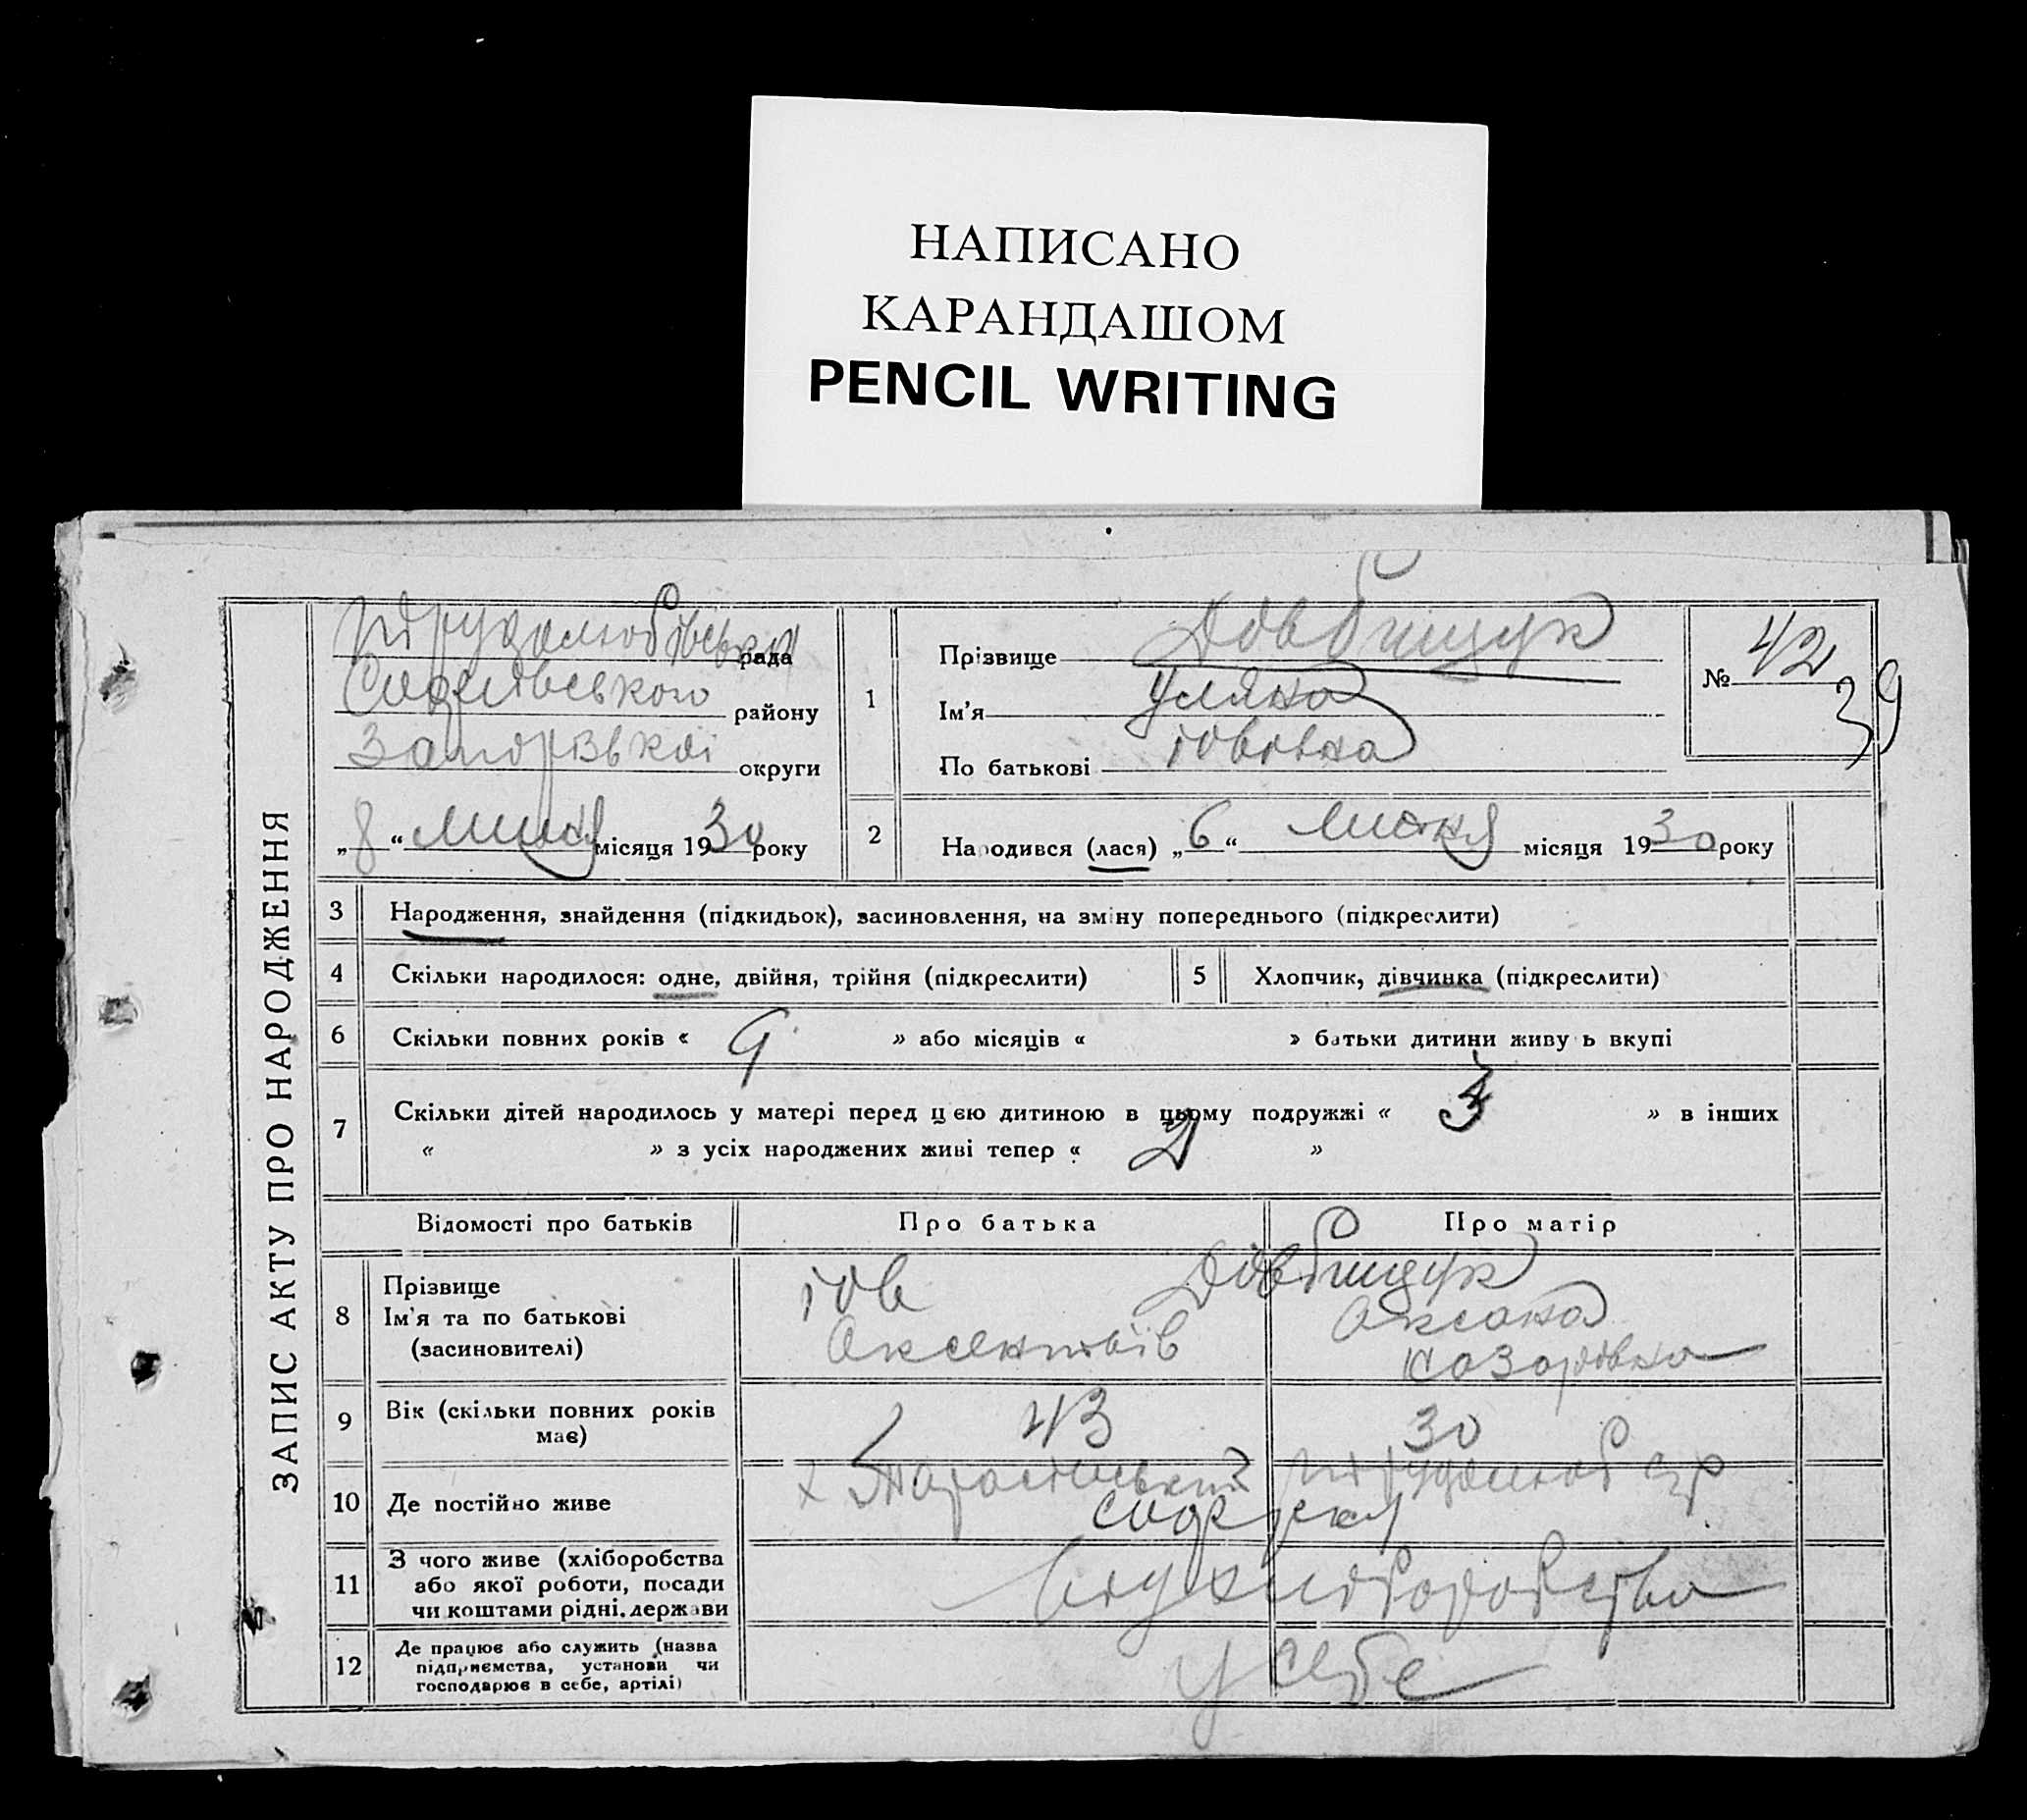 НАПИСАНО
КАРАНДАШОМ
PENCIL WRITING
ЗАПИС АКТУ ПРО НАРОДЖЕННЯ
Трудолюбівська рада
Софіївського району
Запорізької округи
„8“ липня місяця 1930 року
1 Прізвище Довбищук
Ім'я Уляна
По батькові Іовівна
№ 42
39
2 Народився (лася) „6“ липня місяця 1930 року
3 Народження, знайдення (підкидьок), засиновлення, на зміну попереднього (підкреслити)
4 Скільки народилося: одне, двійня, трійня (підкреслити)
5 Хлопчик, дівчинка (підкреслити)
6 Скільки повних років « 9 » або місяців « » батьки дитини живу ь вкупі
7 Скільки дітей народилось у матері перед цією дитиною в цьому подружжі « 3 » в інших
« » з усіх народжених живі тепер « 2 »
Відомості про батьків Про батька Про матір
8 Прізвище
Ім'я та по батькові
(засиновителі)
Довбищук
Іов
Оксентьів
Оксана
Назарівна
9 Вік (скільки повних років має) 43 30
10 Де постійно живе
х Тарасівський Трудолюб
11 З чого живе (хліборобства
або якої роботи, посади
чи коштами рідні. держави
хліборобство
12 Де працює або служить (назва
підприємства, установи чи
господарює в себе, артілі)
у себе